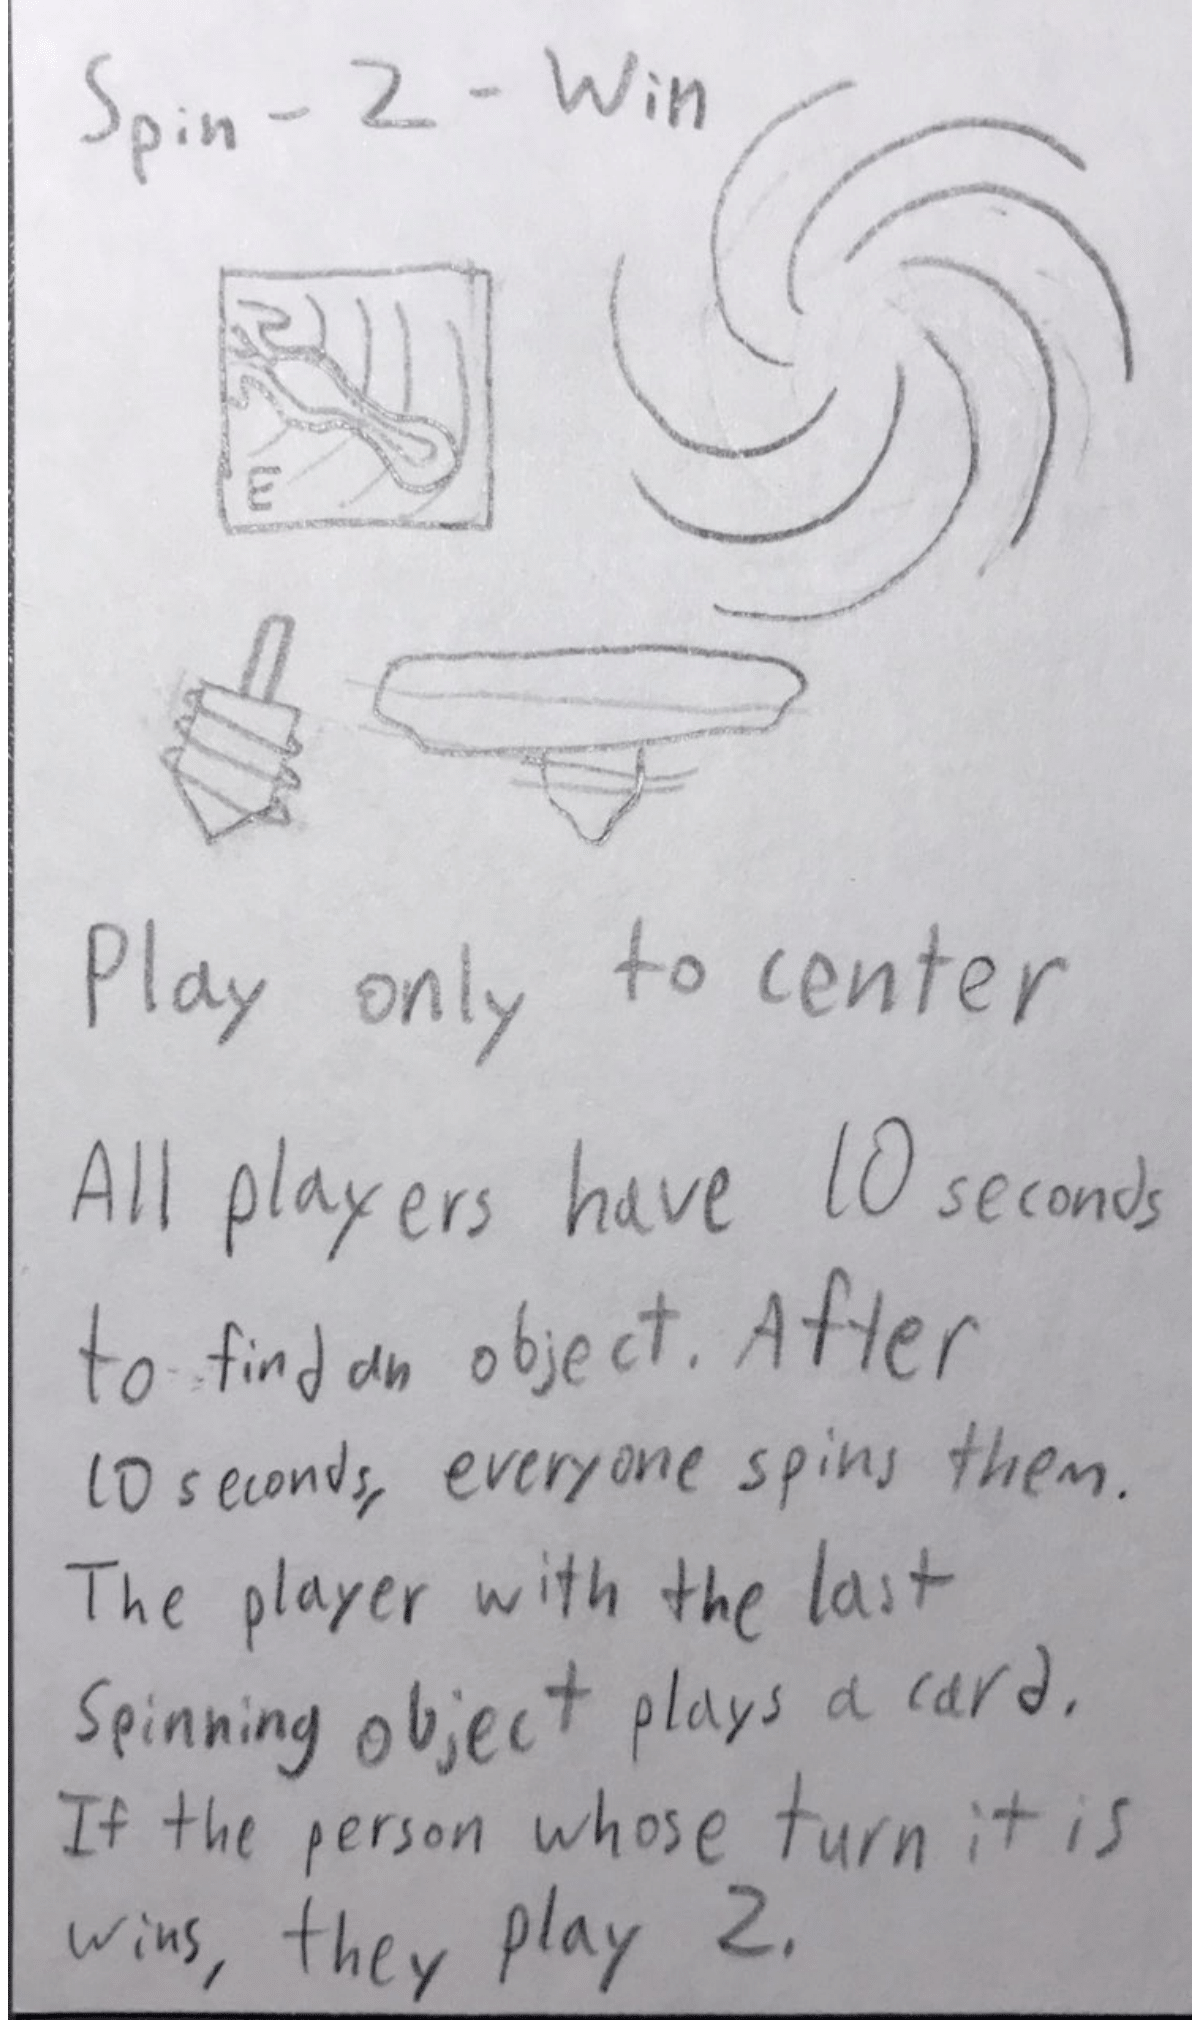 Spin-2-Win
E
Play only to center
All players have 10 seconds
to find an object. After
10 seconds, everyone spins them.
The player with the last
Spinning object plays a card.
If the person whose turn it is
wins, they play 2.